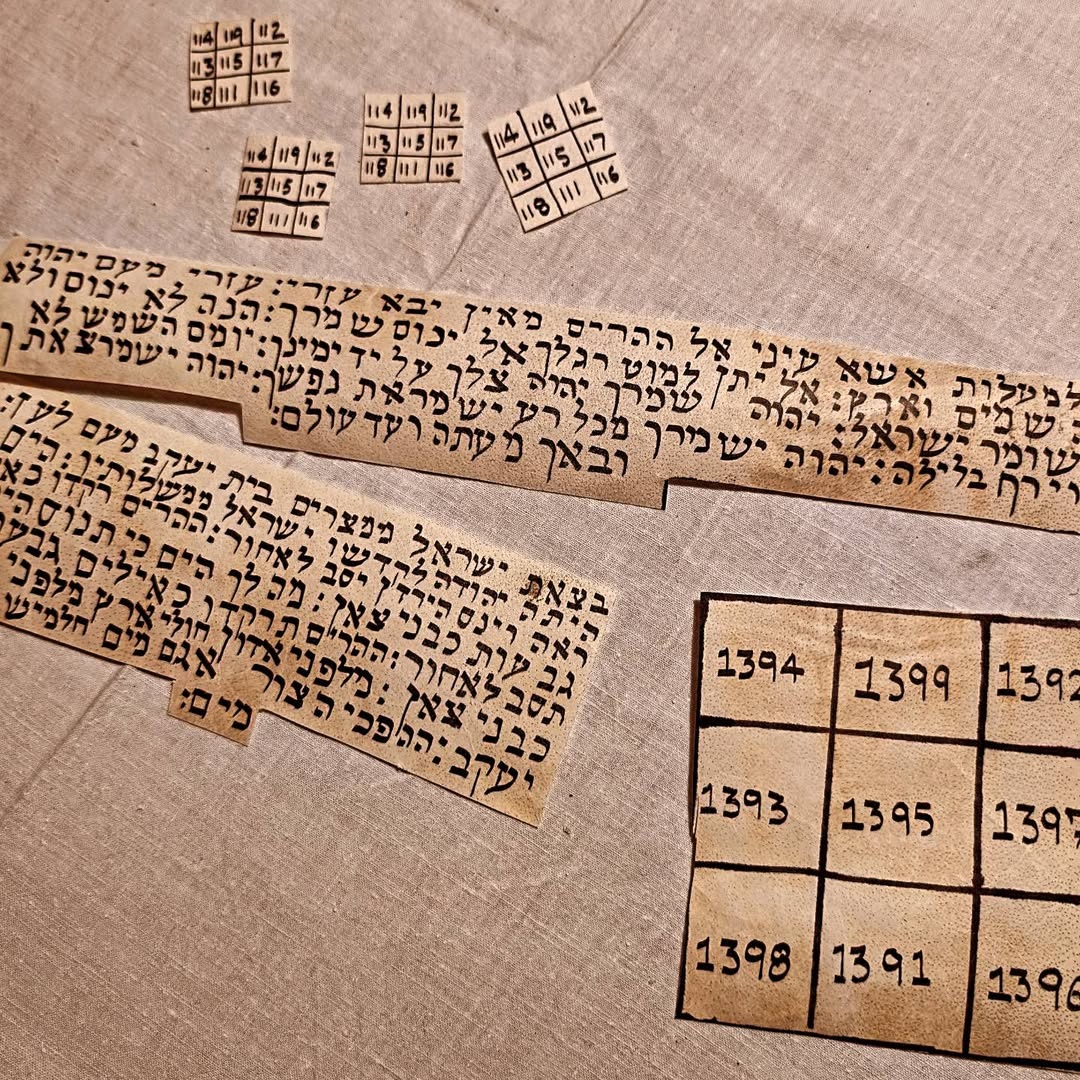 114 119 112
113 115 117
118 111 116
114 119 112
113 115 117
118 111 116
114 119 112
113 115 117
118 111 116
114 119 112
113 115 117
118 111 116
למעלות אשא עיני אל ההרים מאין יבא עזרי: עזרי מעם יהוה
שמים וארץ: אל יתן למוט רגלך אל ינום שמרך: הנה לא ינום ולא
שומר ישראל: יהוה שמרך יהוה צלך על יד ימינך: יומם השמש לא
וירח בלילה: יהוה ישמרך מכל רע ישמר את נפשך: יהוה ישמר צאתך
ובאך מעתה ועד עולם:
בצאת ישראל ממצרים בית יעקב מעם לעז:
היתה יהודה לקדשו ישראל ממשלותיו: הים
ראה וינס הירדן יסב לאחור: ההרים רקדו
גבעות כבני צאן: מה לך הים כי תנוס
תסב לאחור: ההרים תרקדו כאילים
כבני צאן: מלפני אדון חולי ארץ מלפני
יעקב: ההפכי הצור אגם מים חלמיש
מים:
1394 1399 1392
1393 1395 1397
1398 1391 1396